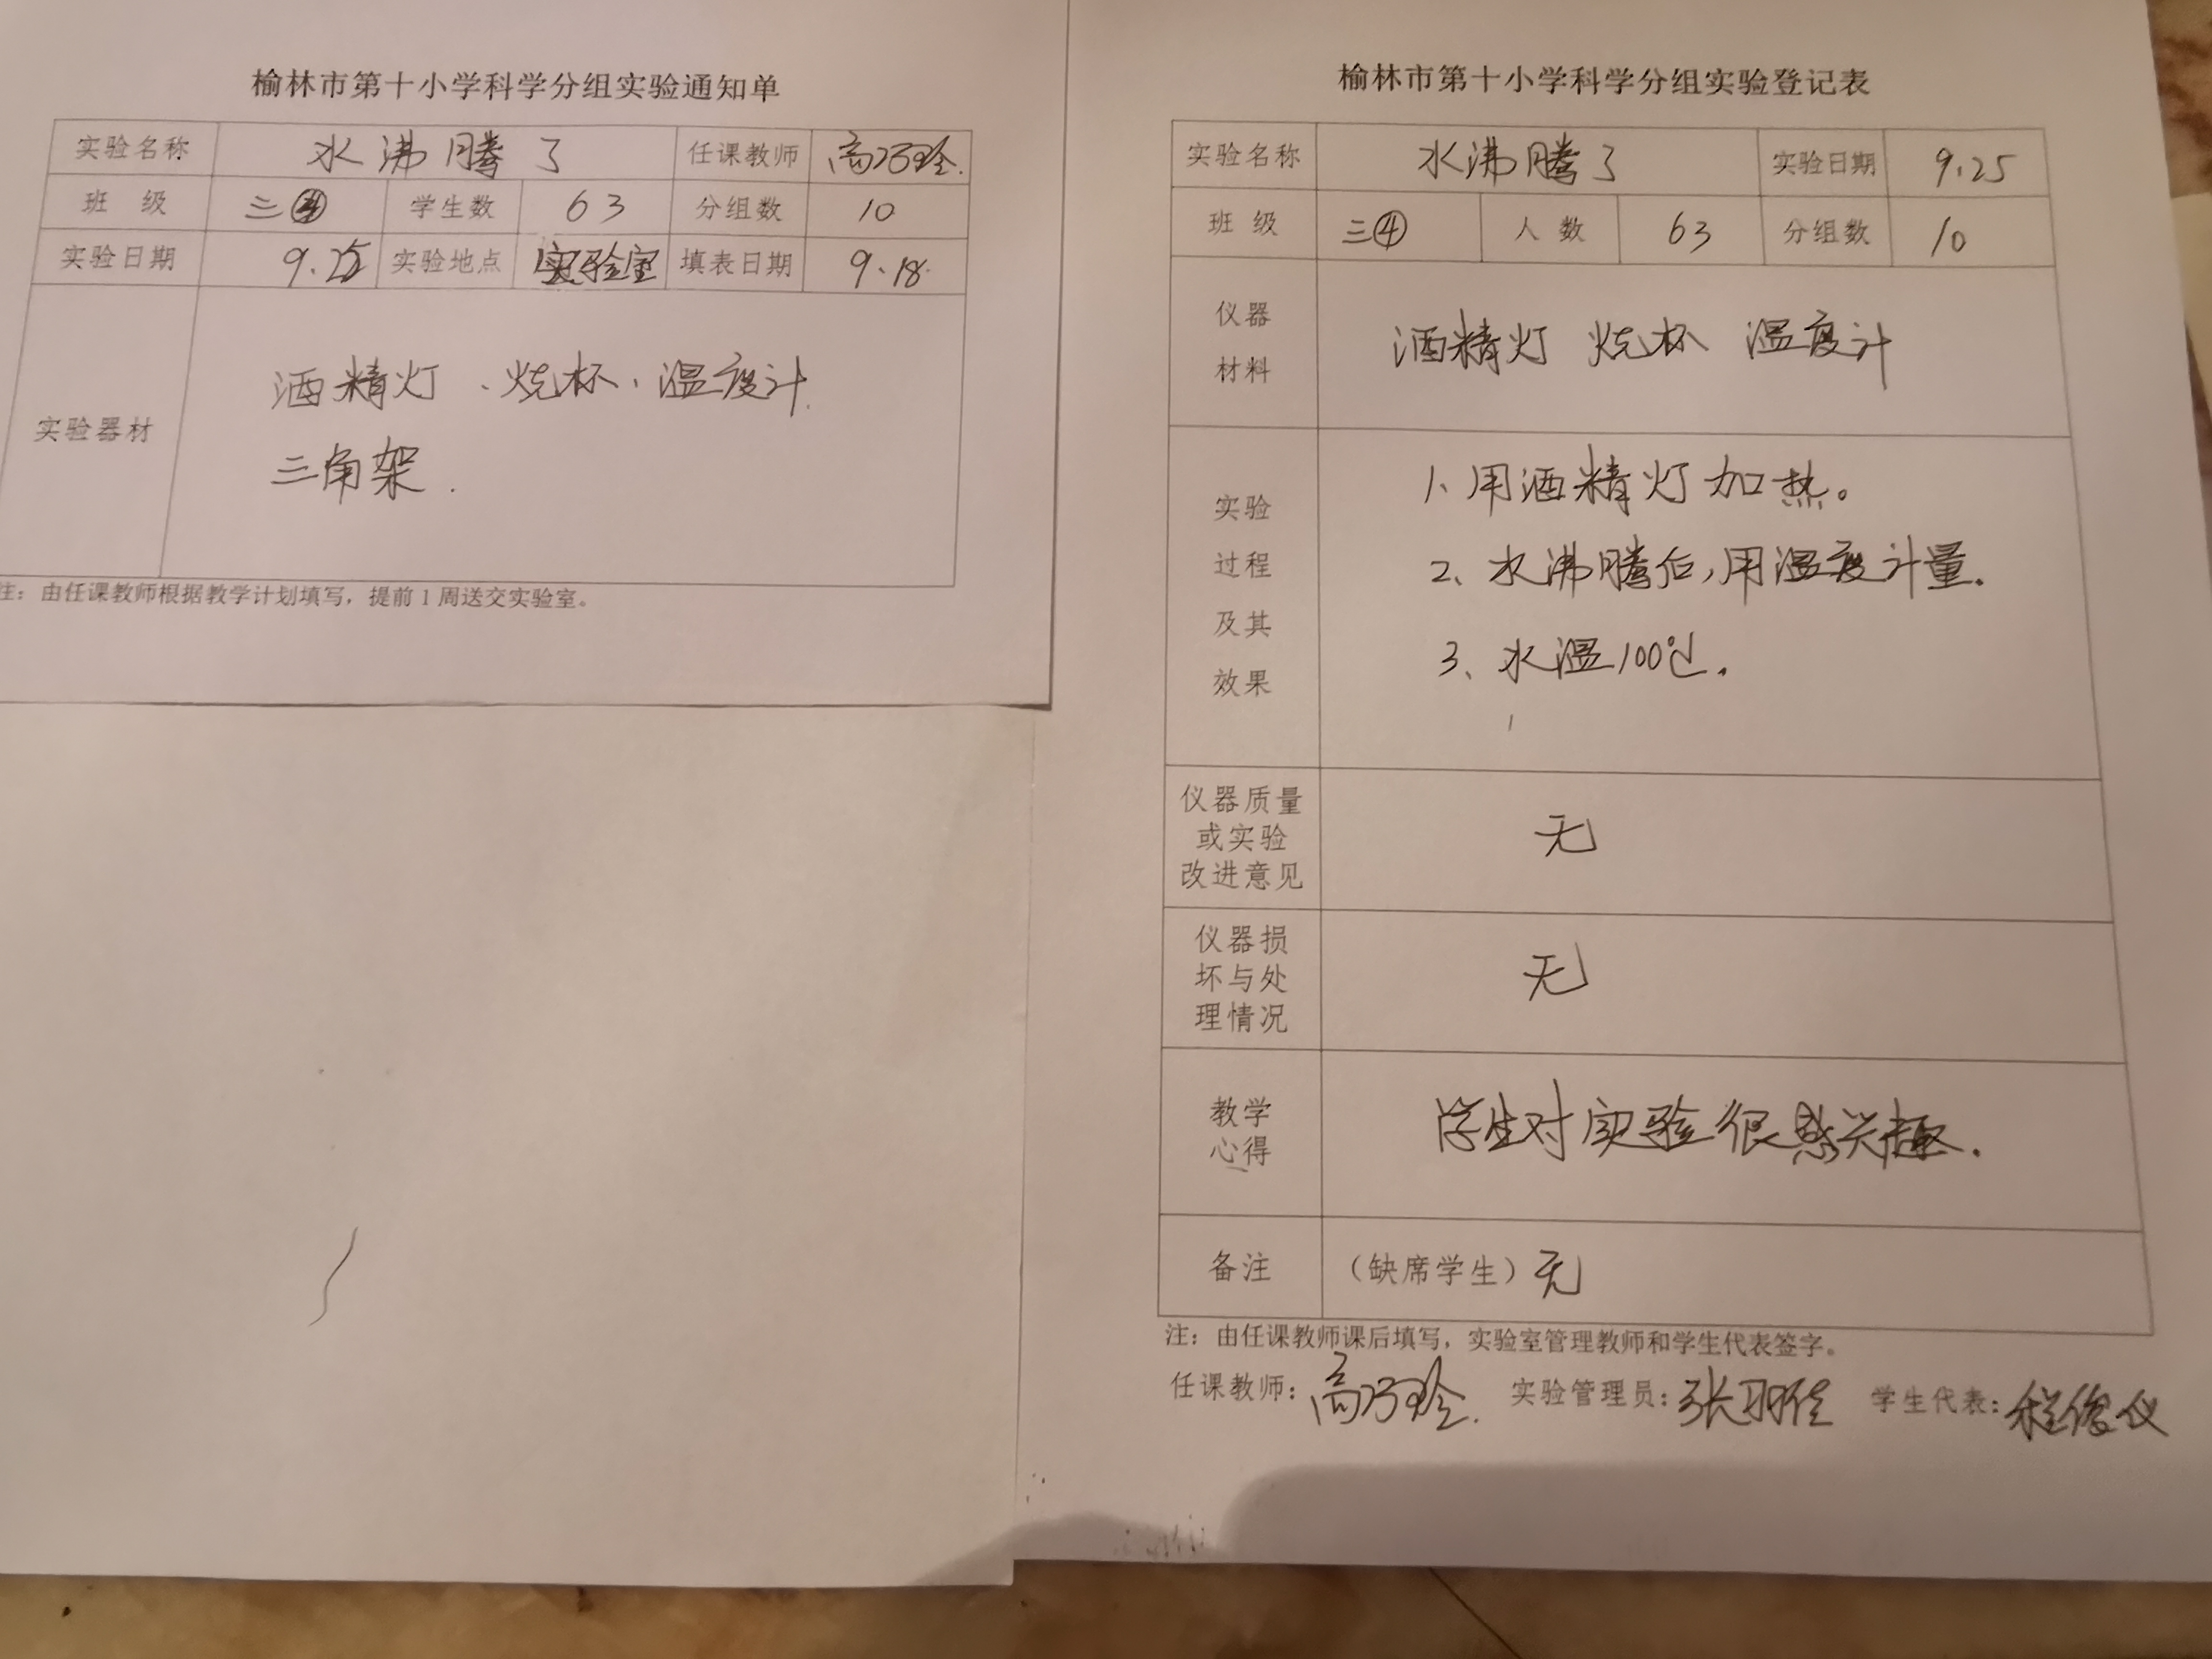 榆林市第十小学科学分组实验通知单
实验名称 水沸腾了 任课教师 高巧玲.
班 级 三④ 学生数 63 分组数 10
实验日期 9.25 实验地点 实验室 填表日期 9.18.
实验器材
酒精灯、烧杯、温度计.
三角架.
注：由任课教师根据教学计划填写，提前1周送交实验室。
榆林市第十小学科学分组实验登记表
实验名称 水沸腾了 实验日期 9.25
班 级 三④ 人 数 63 分组数 10
仪器
材料
酒精灯 烧杯 温度计
实验
过程
及其
效果
1、用酒精灯加热。
2、水沸腾后,用温度计量.
3、水温100℃.
仪器质量
或实验
改进意见
无
仪器损
坏与处
理情况
无
教学
心得
学生对实验很感兴趣.
备注 （缺席学生）无
注：由任课教师课后填写，实验室管理教师和学生代表签字。
任课教师：高巧玲. 实验管理员：张羽佳 学生代表：程俊仪